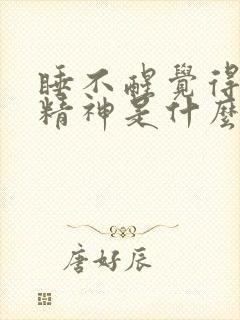 睡不醒覺得
精神是什麼
唐好辰